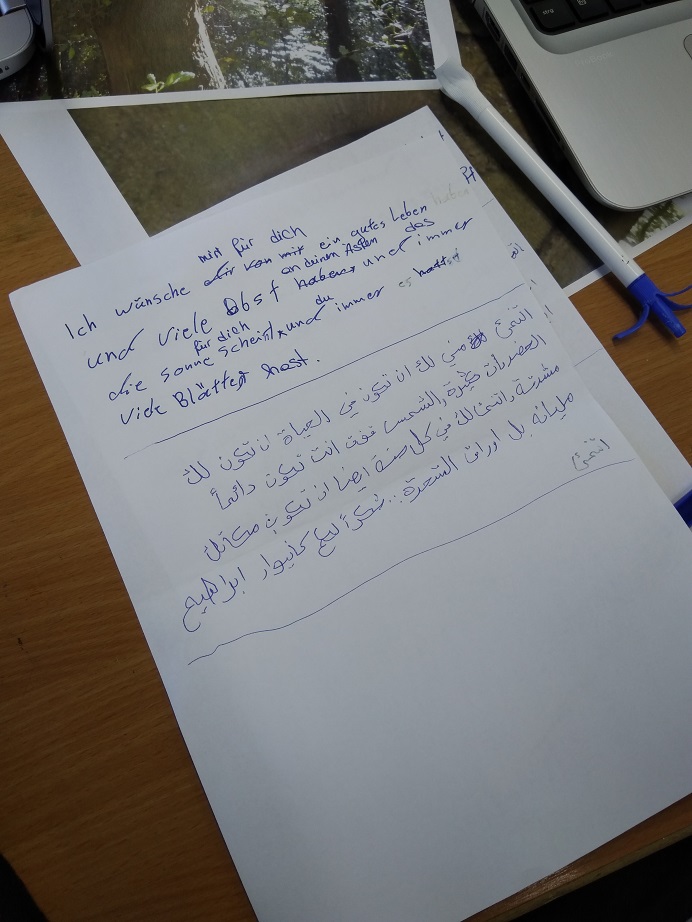 mit für dich
Ich wünsche dir von mir ein gutes Leben
an deinen Ästen das
und viele Obst haben und immer
für dich du
die sonne scheint und immer es hattest
viele Blätter hast.
اتمنئ مني لك ان تكون في الحياة ان تكون لك
الخضروات كثيرة والشمس فوق انت تكون دائماً
مشرقة واتمنئ لك في كل سنة ايضا ان تكون مكانك
مليانه بل اوراق الشجرة.. شكراً لكم كانيوار ابراهيم
اتمنئ